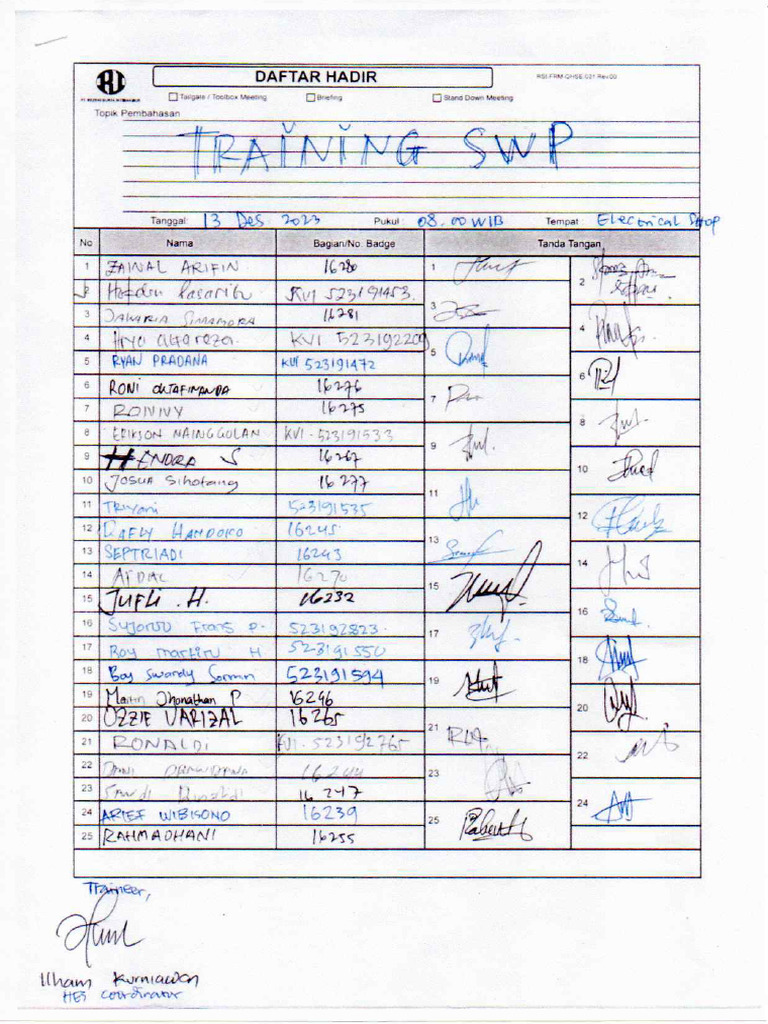 DAFTAR HADIR
RSI-FRM-QHSE-021 Rev.00
Tailgate / Toolbox Meeting Briefing Stand Down Meeting
Topik Pembahasan
TRAINING SWP
Tanggal: 13 Des 2023 Pukul : 08.00 WIB Tempat : Electrical Shop
No Nama Bagian/No. Badge Tanda Tangan
1 ZAINAL ARIFIN 16280 1
2 Pasaribu KVI 523191453. 2
3 ZAKARIA SIMAMORA 16281 3
4 KVI 523192209 4
5 RYAN PRADANA KVI 523191472 5
6 RONI OKTAFIMANDA 16276 6
7 RONNY 16275 7
8 ERIKSON NAINGGOLAN KVI - 523191533 8
9 HENDRA S 16267 9
10 Josua Sihotang 16277 10
11 Triyoni 523191535 11
12 RAFLY HANDOKO 16245 12
13 SEPTRIADI 16243 13
14 AFDAL 16270 14
15 JUFLI .H. 16232 15
16 Frans P. 523192823 16
17 Boy martitu H 523191550 17
18 Boy Swandy 523191594 18
19 Martin Jhonathan P 16246 19
20 OZZIE VARIZAL 16265 20
21 RONALDI KVI - 523192765 21
22 DANI 16244 22
23 16247 23
24 ARIEF WIBISONO 16239 24
25 RAHMADHANI 16255 25
Traineer,
Ilham Kurniawan
HES coordinator